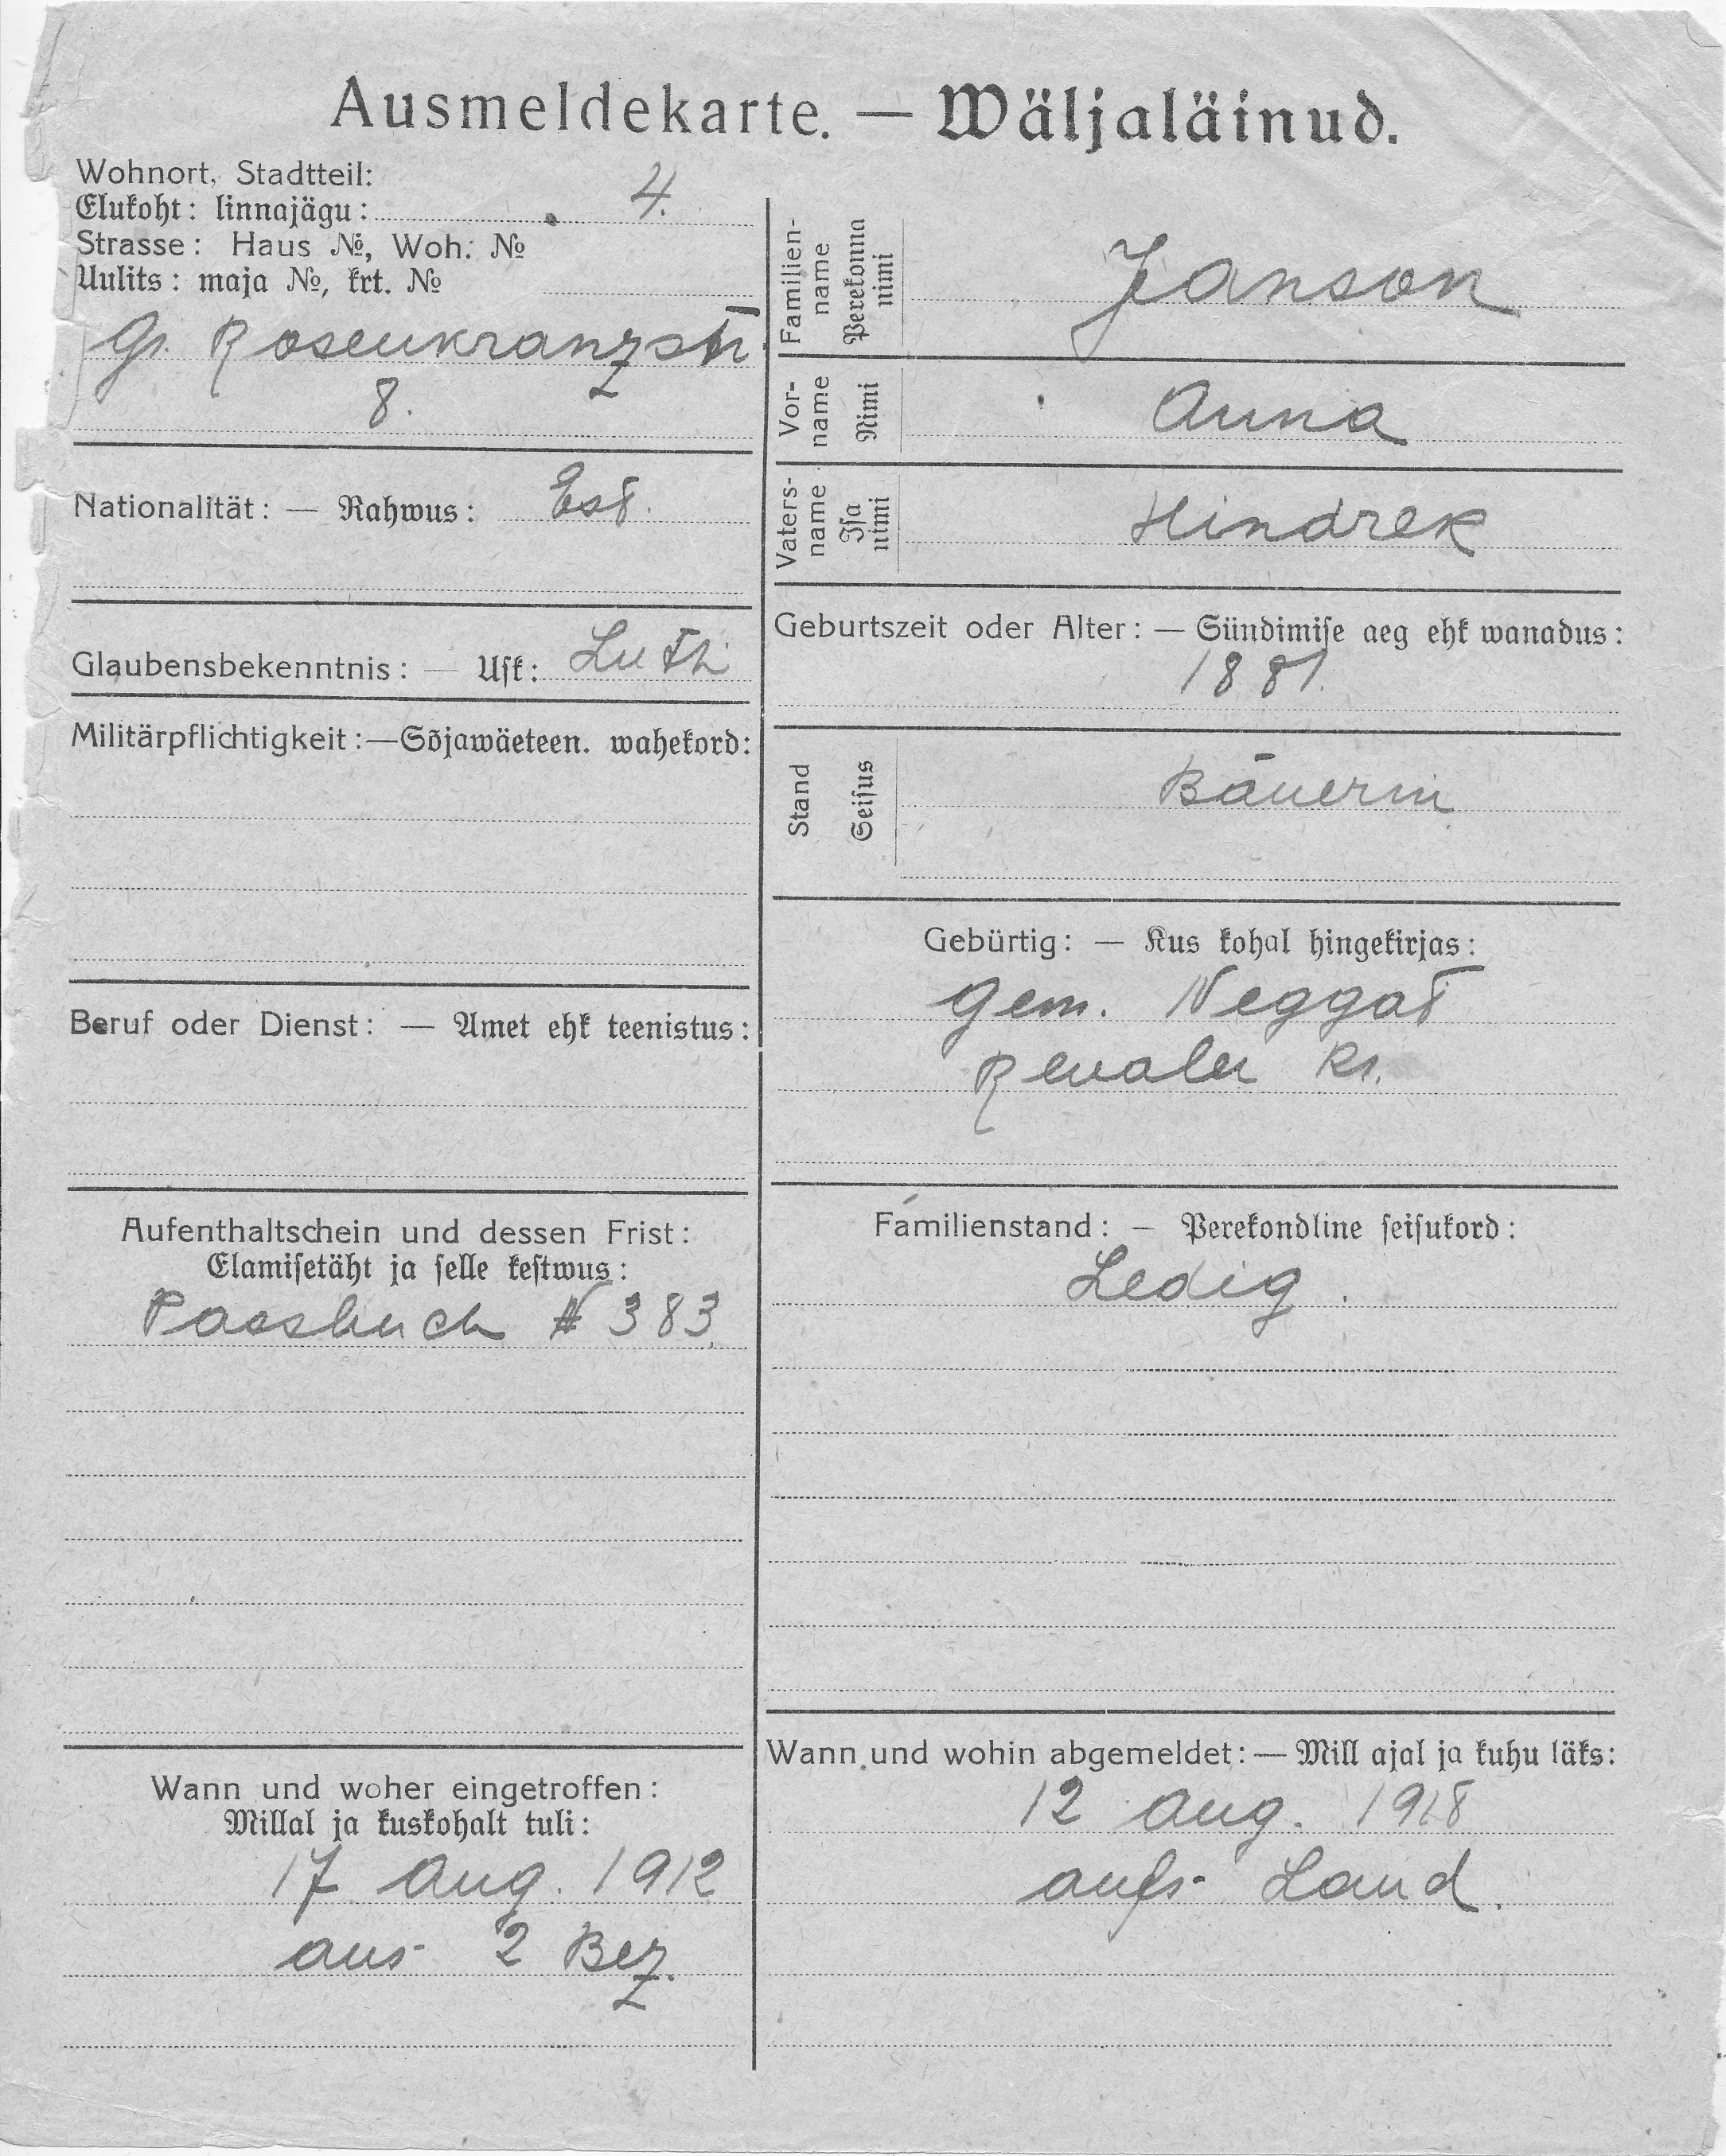 Ausmeldekarte. — Wäljaläinud.
Wohnort, Stadtteil:
Elukoht: linnajägu: 4.
Strasse: Haus №, Woh. №
Uulits: maja №, krt. №
Gr. Rosenkranzstr.
8.
Nationalität: — Rahwus: Est.
Glaubensbekenntnis: — Usk: Luth
Militärpflichtigkeit:—Sõjawäeteen. wahekord:
Beruf oder Dienst: — Amet ehk teenistus:
Aufenthaltschein und dessen Frist:
Elamisetäht ja selle kestwus:
Passbuch N 383
Wann und woher eingetroffen:
Millal ja kuskohalt tuli:
17 Aug. 1912
aus 2 Bez.
Familien-
name
Perekonna
nimi
Janson
Vor-
name
Nimi
Anna
Vaters-
name
Isa
nimi
Hindrek
Geburtszeit oder Alter: — Sündimise aeg ehk wanadus:
1881.
Stand
Seisus
Bäuerin
Gebürtig: — Kus kohal hingekirjas:
Gem. Neggat
Revaler Kr.
Familienstand: — Perekondline seisukord:
Ledig.
Wann und wohin abgemeldet: — Mill ajal ja kuhu läks:
12 Aug. 1918
aufs Land.